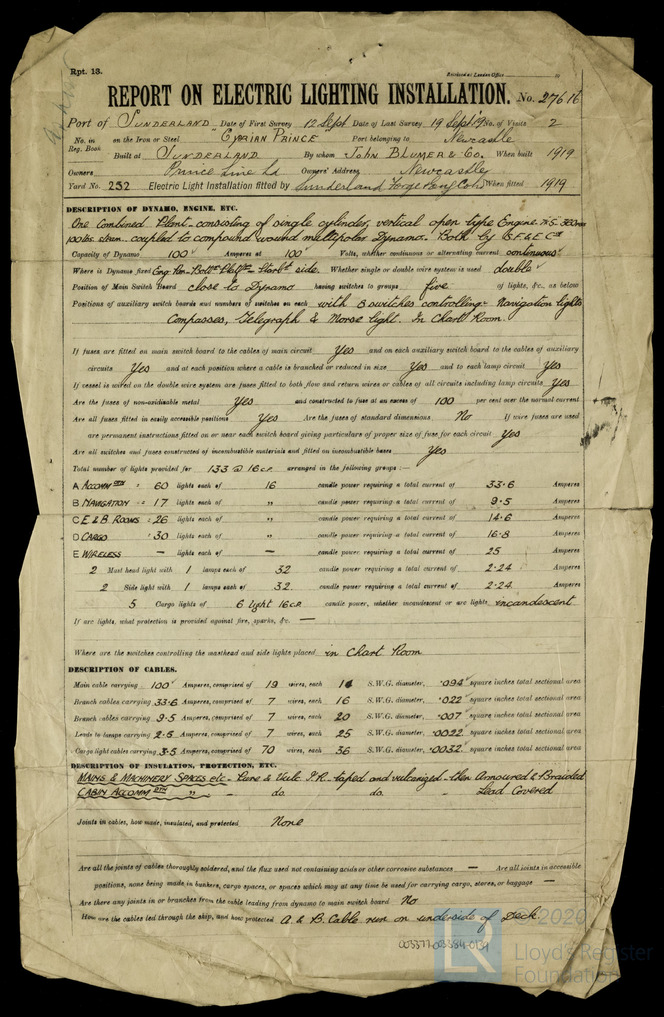 Rpt. 13.
Received at London Office
REPORT ON ELECTRIC LIGHTING INSTALLATION. No. 27616
Port of SUNDERLAND Date of First Survey 12 Sept Date of Last Survey 19 Sept '19 No. of Visits 2
No. in Reg. Book on the Iron or Steel "CYPRIAN PRINCE" Port belonging to Newcastle
Built at SUNDERLAND By whom JOHN BLUMER & Co. When built 1919
Owners Prince Line Ld Owners' Address Newcastle
Yard No. 252 Electric Light Installation fitted by Sunderland Forge & Eng Co Ld When fitted 1919
DESCRIPTION OF DYNAMO, ENGINE, ETC.
One Combined Plant consisting of single cylinder, vertical open type Engine
100 lbs. steam. coupled to compound wound multipolar Dynamo. Both by S.F. & E Co
Capacity of Dynamo 100 Amperes at 100 Volts, whether continuous or alternating current continuous
Where is Dynamo fixed Eng. Rm. Bottm Platfm Starbd side. Whether single or double wire system is used double
Position of Main Switch Board close to Dynamo having switches to groups five of lights, &c., as below
Positions of auxiliary switch boards and numbers of switches on each with 8 switches controlling Navigation lights
Compasses, Telegraph & Morse light. In Chart Room.
If fuses are fitted on main switch board to the cables of main circuit Yes and on each auxiliary switch board to the cables of auxiliary
circuits Yes and at each position where a cable is branched or reduced in size Yes and to each lamp circuit Yes
If vessel is wired on the double wire system are fuses fitted to both flow and return wires or cables of all circuits including lamp circuits Yes
Are the fuses of non-oxidizable metal Yes and constructed to fuse at an excess of 100 per cent over the normal current
Are all fuses fitted in easily accessible positions Yes Are the fuses of standard dimensions No If wire fuses are used
are permanent instructions fitted on or near each switch board giving particulars of proper size of fuse for each circuit Yes
Are all switches and fuses constructed of incombustible materials and fitted on incombustible bases Yes
Total number of lights provided for 133 @ 16 c.p. arranged in the following groups :—
A ACCOMM DTN 60 lights each of 16 candle power requiring a total current of 33.6 Amperes
B NAVIGATION 17 lights each of " candle power requiring a total current of 9.5 Amperes
C E & B. ROOMS 26 lights each of " candle power requiring a total current of 14.6 Amperes
D CARGO 30 lights each of " candle power requiring a total current of 16.8 Amperes
E WIRELESS — lights each of — candle power requiring a total current of 25 Amperes
2 Mast head light with 1 lamps each of 32 candle power requiring a total current of 2.24 Amperes
2 Side light with 1 lamps each of 32 candle power requiring a total current of 2.24 Amperes
5 Cargo lights of 6 light 16 c.p. candle power, whether incandescent or arc lights incandescent
If arc lights, what protection is provided against fire, sparks, &c. —
Where are the switches controlling the masthead and side lights placed in Chart Room
DESCRIPTION OF CABLES.
Main cable carrying 100 Amperes, comprised of 19 wires, each 14 S.W.G. diameter, .094 square inches total sectional area
Branch cables carrying 33.6 Amperes, comprised of 7 wires, each 16 S.W.G. diameter, .022 square inches total sectional area
Branch cables carrying 9.5 Amperes, comprised of 7 wires, each 20 S.W.G. diameter, .007 square inches total sectional area
Leads to lamps carrying 2.5 Amperes, comprised of 7 wires, each 25 S.W.G. diameter, .0022 square inches total sectional area
Cargo light cables carrying 3.5 Amperes, comprised of 70 wires, each 36 S.W.G. diameter, .0032 square inches total sectional area
DESCRIPTION OF INSULATION, PROTECTION, ETC.
MAINS & MACHINERY SPACES etc - Pure & Vulc I.R. taped and vulcanized - then Armoured & Braided
CABIN ACCOMM DTN " - do. do. - Lead Covered
Joints in cables, how made, insulated, and protected None
Are all the joints of cables thoroughly soldered, and the flux used not containing acids or other corrosive substances — Are all joints in accessible
positions, none being made in bunkers, cargo spaces, or spaces which may at any time be used for carrying cargo, stores, or baggage —
Are there any joints in or branches from the cable leading from dynamo to main switch board No
How are the cables led through the ship, and how protected A & B. Cable run on underside of Deck
003377-003384-0139
© 2020
LR
Lloyd's Register
Foundation